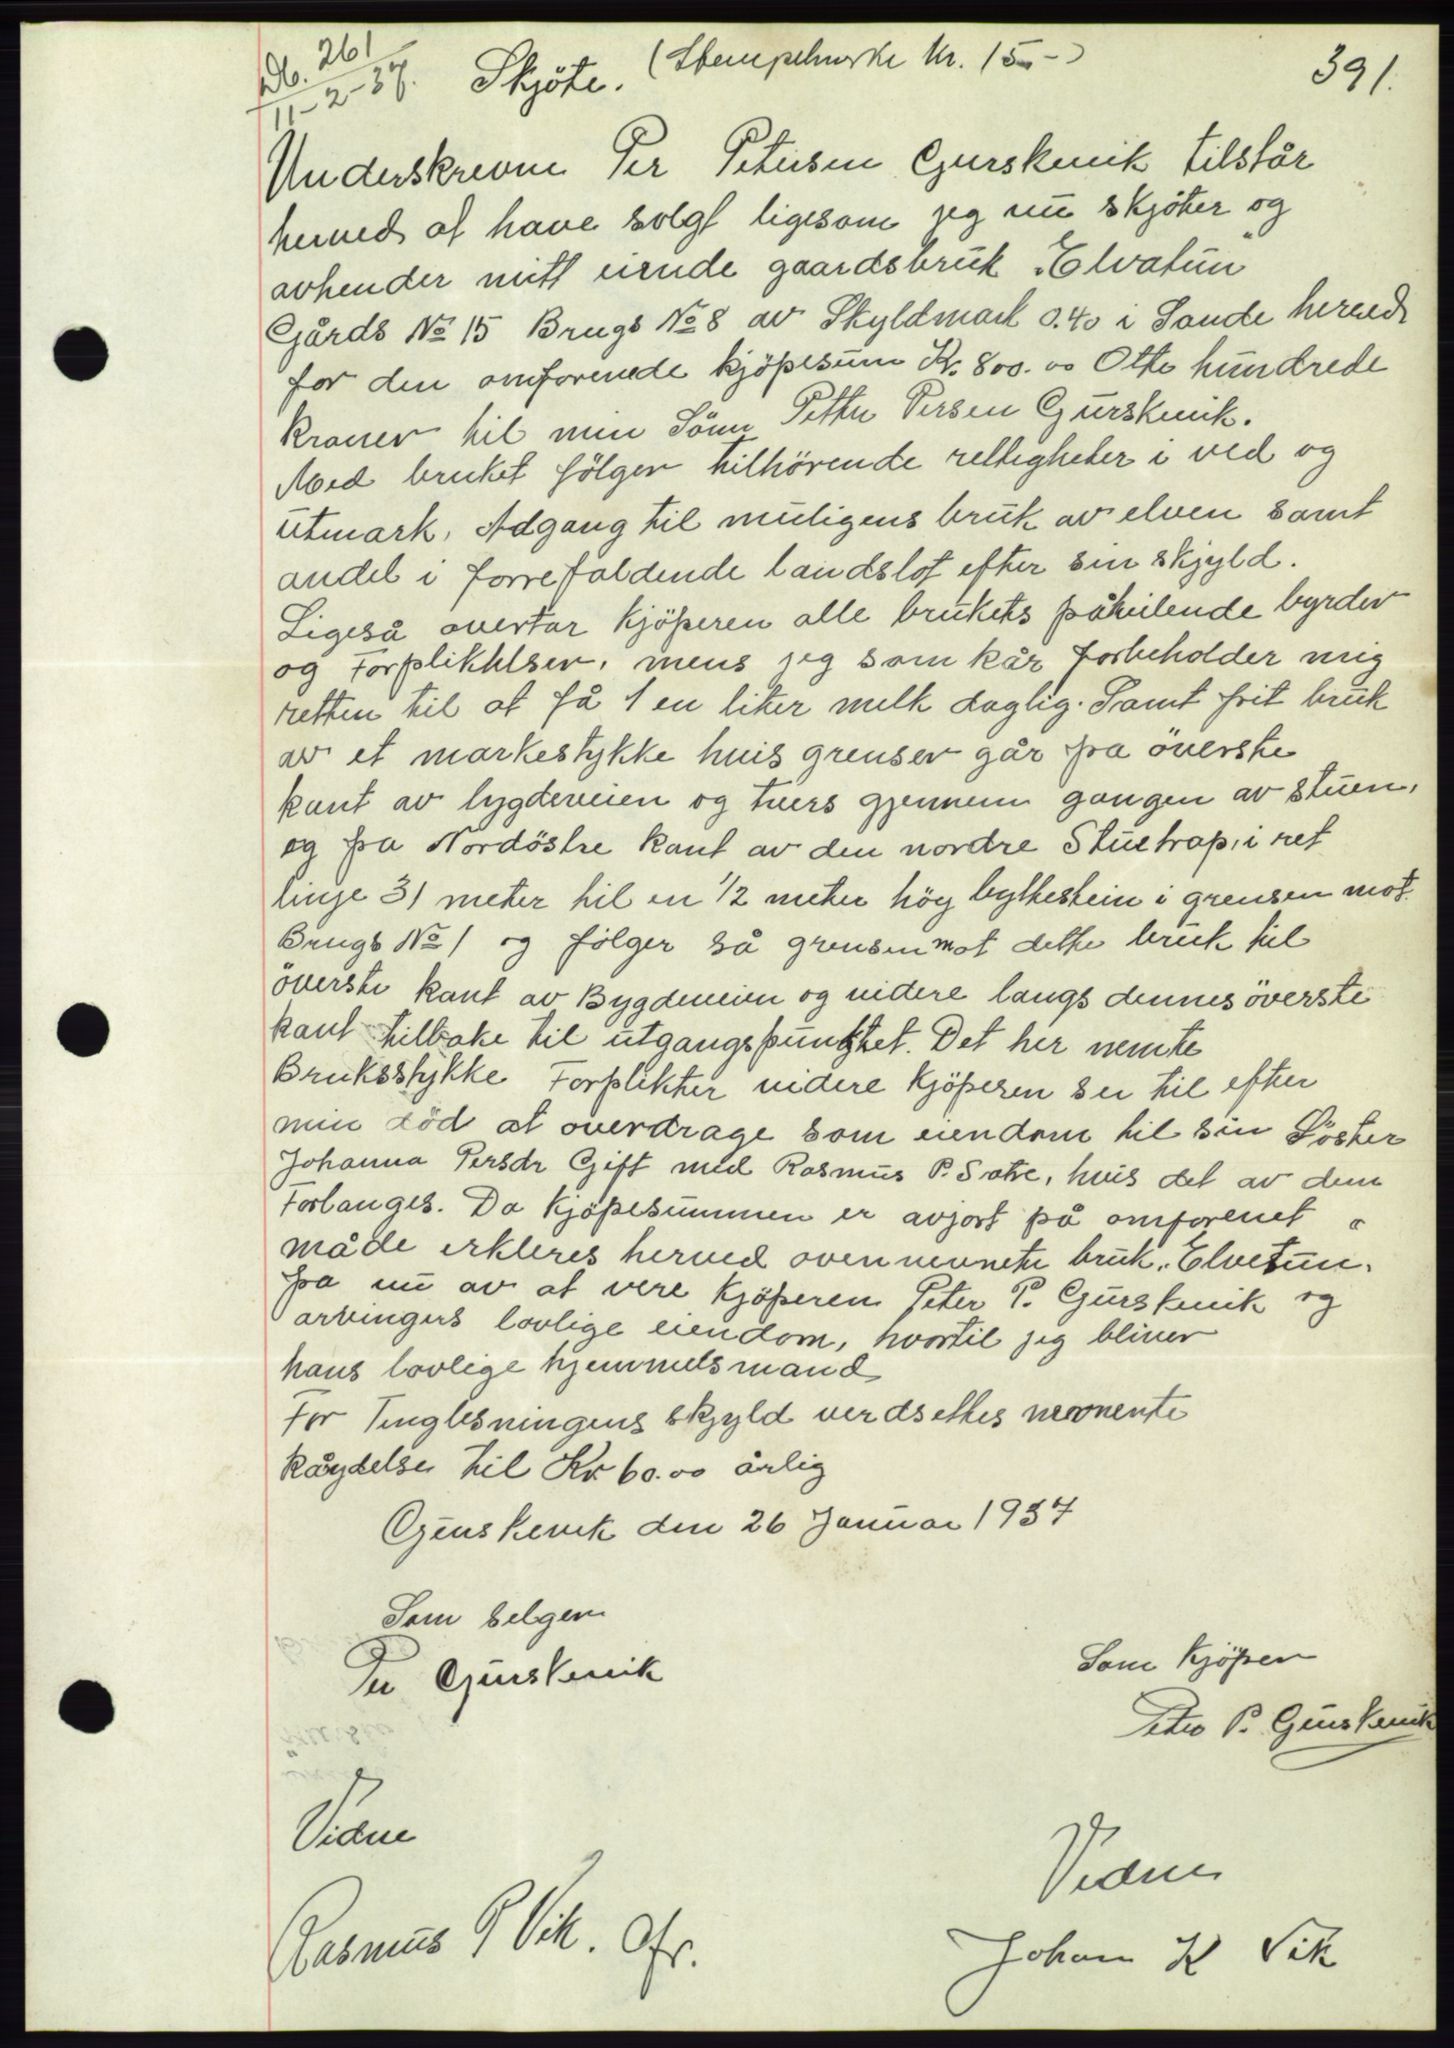 Db. 261
11-2-37.
Skjöte. (Stempelmerke Kr. 15.-)
391.
Underskrevne Per Petersen Gurskevik tilstår
herved at have solgt ligesom jeg nu skjöter og
avhender mitt eiende gaardsbruk "Elvatun"
Gårds No 15 Brugs No 8 av Skyldmark 0.40 i Sande hered
for den omforenede kjöpesum Kr. 800.00 Otte hundrede
kroner til min Sönn Petter Persen Gurskevik.
Med bruket fölger tilhörende rettigheter i ved og
utmark, Adgang til muligens bruk av elven samt
andel i forrefaldende landslot efter sin skjyld.
Ligeså overtar kjöperen alle brukets påhvilende byrder
og Forpliktelser, mens jeg som kår forbeholder mig
retten til at få 1 en liter melk daglig. Samt frit bruk
av et markestykke hvis grenser går fra överste
kant av bygdeveien og tvers gjennem gangen av stuen,
og fra Nordöstre kant av den nordre Stuetrap, i ret
linje 31 meter til en 1/2 meter höy byttestein i grensen mot
Brugs No 1 og fölger så grensen mot dette bruk til
överste kant av Bygdeveien og videre langs dennes överste
kant tilbake til utgangspunktet. Det her nemte
Bruksstykke Forplikter videre kjöperen sei til efter
min död at overdrage som eiendom til sin Söster
Johanna Persdr Gift med Rasmus P. Satre, hvis det av dem
Forlanges. Da kjöpesummen er avjort på omforenet
måde erkleres herved ovennevnete bruk "Elvetun"
fra nu av at vere kjöperen Peter P. Gurskevik og
arvingers lovlige eiendom, hvortil jeg bliver
hans lovlige hjemmelsmand
For Tinglesningens skjyld verdsettes nevnente
kårydelse til Kr 60.00 årlig
Gurskevik den 26 Januar 1937
Som selger
Per Gurskevik
Som kjöper
Peter P. Gurskevik
Vidne
Rasmus P Vik.
Vidne
Johan K Vik